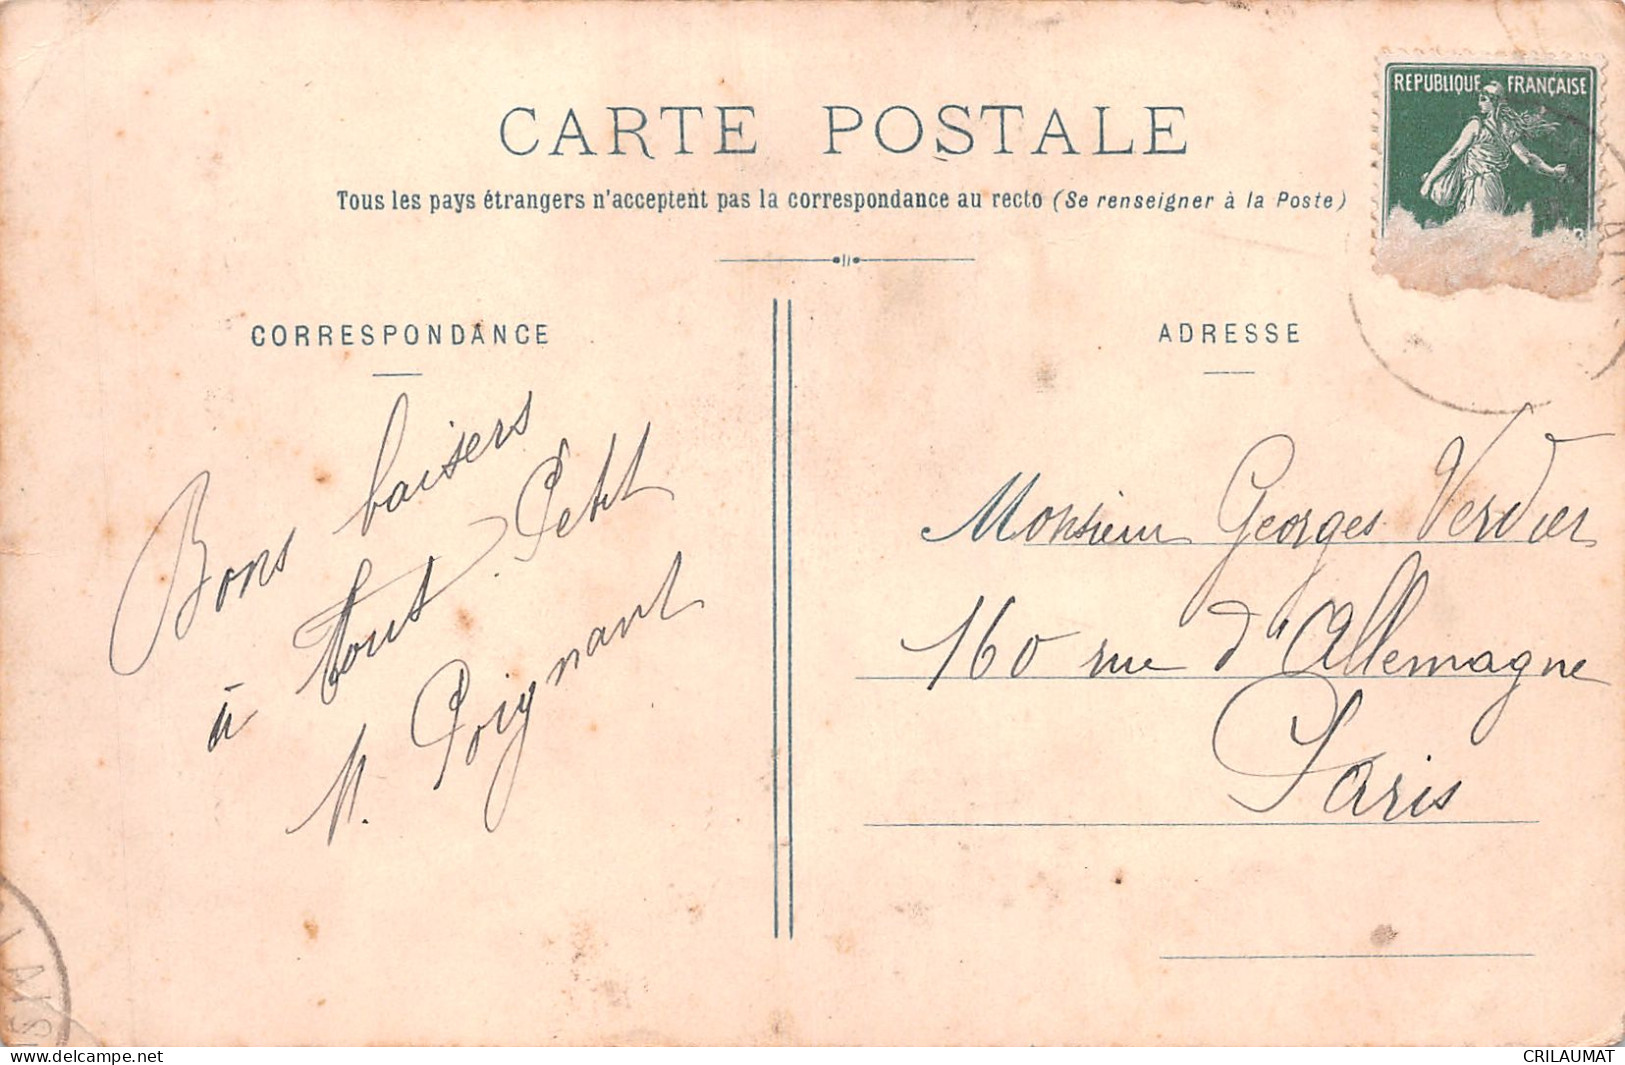 CARTE POSTALE
Tous les pays étrangers n'acceptent pas la correspondance au recto (Se renseigner à la Poste)
REPUBLIQUE FRANÇAISE
CORRESPONDANCE
Bons baisers
à tous. Petit
M. Poignant
ADRESSE
Monsieur Georges Verdier
160 rue d'Allemagne
Paris
www.delcampe.net
CRILAUMAT